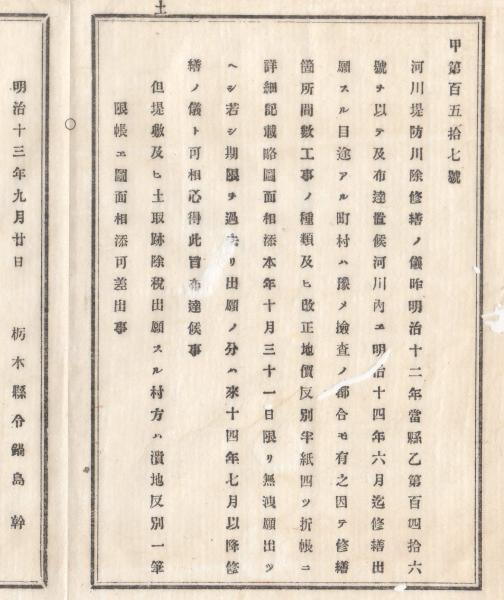 甲第百五拾七號
河川堤防川除修繕ノ儀昨明治十二年當縣乙第百四拾六
號ヲ以テ及布達置候河川內ヱ明治十四年六月迄修繕出
願スル目途アル町村ハ豫メ撿查ノ都合モ有之因テ修繕
箇所間數工事ノ種類及ヒ改正地價反別半紙四ツ折帳ニ
詳細記載略圖面相添本年十月三十一日限リ無洩願出ツ
ヘシ若シ期限ヲ過去リ出願ノ分ハ來十四年七月以降修
繕ノ儀ト可相心得此旨布達候事
但堤敷及ヒ土取跡除稅出願スル村方ハ潰地反別一筆
限帳ヱ圖面相添可差出事
明治十三年九月廿日 栃木縣令鍋島幹
土